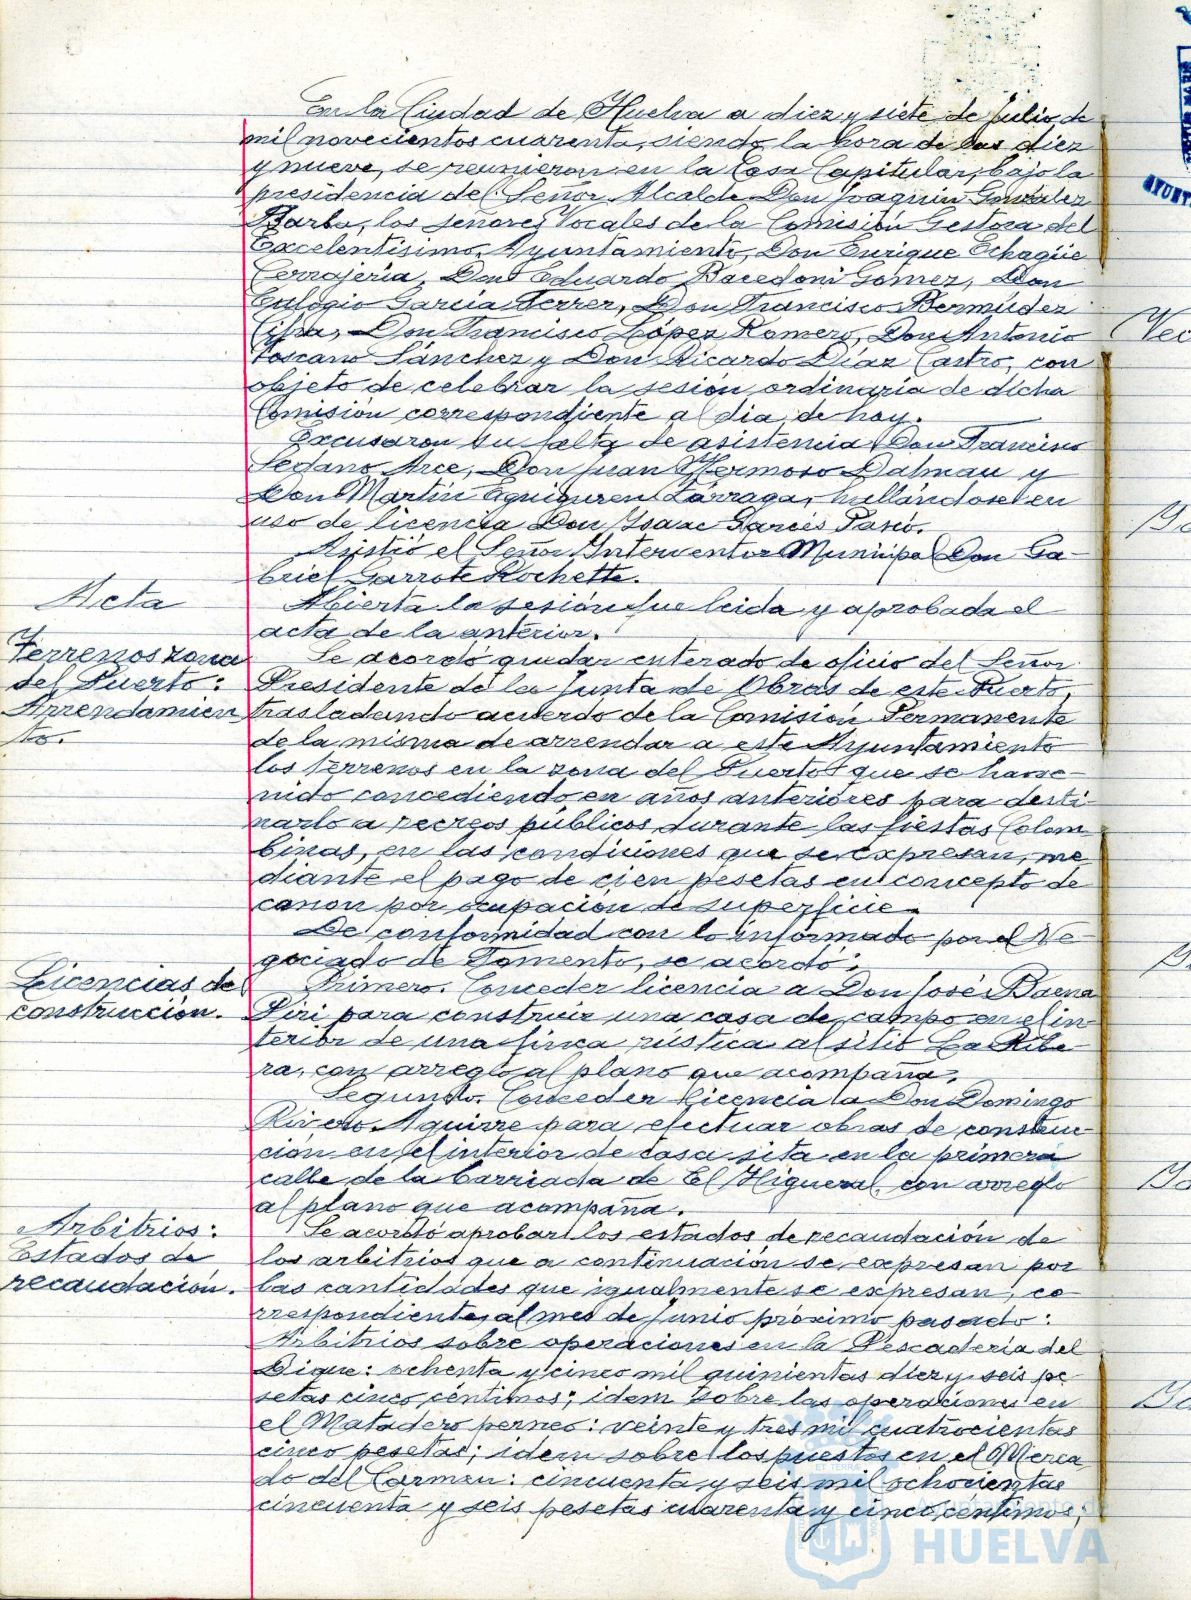 En la Ciudad de Huelva a diez y siete de Julio de
mil novecientos cuarenta, siendo la hora de las diez
y nueve, se reunieron en la Casa Capitular, bajo la
presidencia del Señor Alcalde Don Joaquin González
Barba, los señores Vocales de la Comisión Gestora del
Excelentísimo Ayuntamiento, Don Enrique Echagüe
Cerrajería, Don Eduardo Bacedoni Gómez, Don
Eulogio García Ferrer, Don Francisco Bermúdez
Don Francisco López Romero, Don Antonio
Toscano Sánchez y Don Ricardo Díaz Castro, con
objeto de celebrar la sesión ordinaria de dicha
Comisión correspondiente al dia de hoy.
Excusaron su falta de asistencia Don Francisco
Sedano Arce, Don Juan Hermoso Dalmau y
Don Martín Eguiguren Lárraga, hallándose en
uso de licencia Don Ysaac Garcés
Asistió el Señor Ynterventor Municipal Don Ga-
briel Garrote Rochette.
Acta
Abierta la sesión fue leida y aprobada el
acta de la anterior.
Terrenos zona
del Puerto:
Arrendamien
to.
Se acordó quedar enterado de oficio del Señor
Presidente de la Junta de Obras de este Puerto,
trasladando acuerdo de la Comisión Permanente
de la misma de arrendar a este Ayuntamiento
los terrenos en la zona del Puerto que se han ve-
nido concediendo en años anteriores para desti-
narlo a recreos públicos durante las fiestas Colom
binas, en las condiciones que se expresan, me
diante el pago de cien pesetas en concepto de
canon por ocupación de superficie.
De conformidad con lo informado por el Ne-
gociado de Fomento, se acordó:
Licencias de
construcción.
Primero. Conceder licencia a Don José Baena
Piri para construir una casa de campo en el in-
terior de una finca rústica al sitio La Ribe-
ra, con arreglo al plano que acompaña.
Segundo. Conceder licencia a Don Domingo
Rivero Aguirre para efectuar obras de construc-
ción en el interior de casa sita en la primera
calle de la barriada de El Higueral, con arreglo
al plano que acompaña.
Arbitrios:
Estados de
recaudación.
Se acordó aprobar los estados de recaudación de
los arbitrios que a continuación se expresan por
las cantidades que igualmente se expresan, co-
rrespondientes al mes de Junio próximo pasado:
Arbitrios sobre operaciones en la Pescadería del
Dique: ochenta y cinco mil quinientas diez y seis pe
setas cinco céntimos; idem sobre las operaciones en
el Matadero perneo: veinte y tres mil cuatrocientas
cinco pesetas; idem sobre los puestos en el Merca
do del Carmen: cincuenta y seis mil ochocientas
cincuenta y seis pesetas cuarenta y cinco céntimos;
Ayuntamiento de
HUELVA